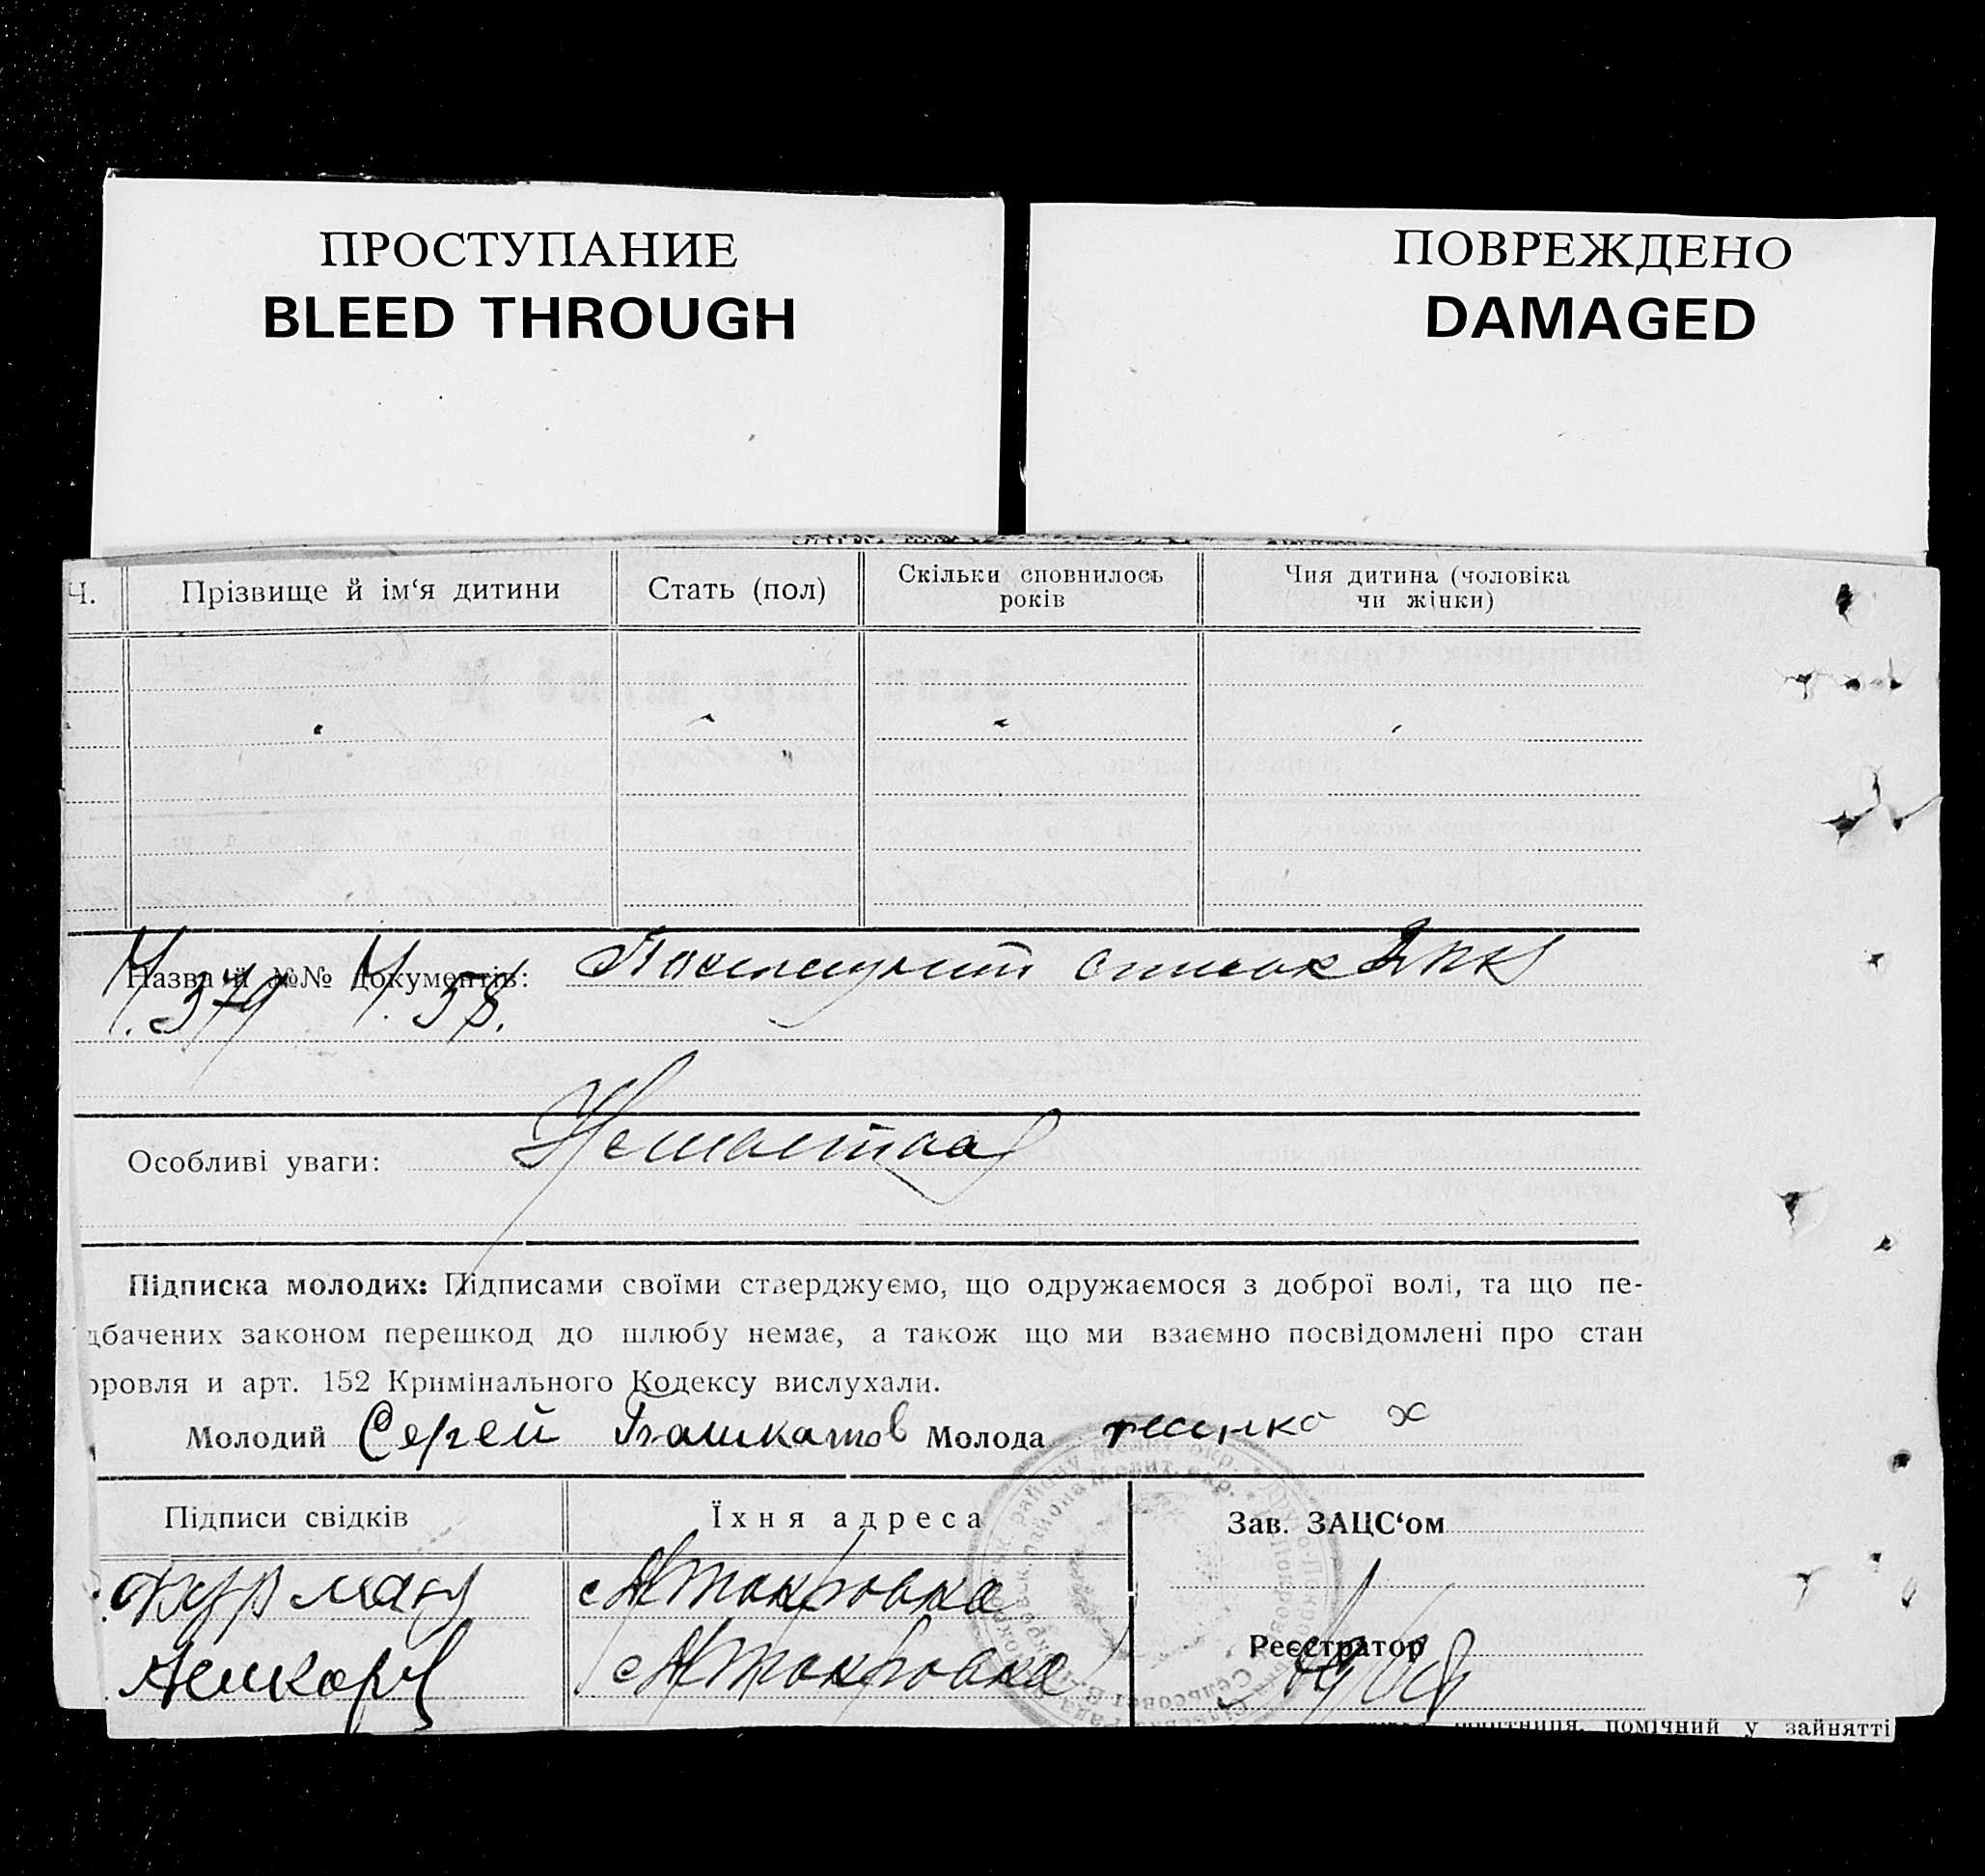 ПРОСТУПАНИЕ
BLEED THROUGH
ПОВРЕЖДЕНО
DAMAGED
Ч. Прізвище й ім‘я дитини Стать (пол) Скільки сповнилось років Чия дитина (чоловіка чи жінки)
Назва й №№ документів: список
Ч. 379 Ч. 58.
Особливі уваги:
Підписка молодих: Підписами своїми стверджуємо, що одружаємося з доброї волі, та що пе-
дбачених законом перешкод до шлюбу немає, а також що ми взаємно посвідомлені про стан
оровля и арт. 152 Кримінального Кодексу вислухали.
Молодий Сергей Башкатов Молода х
Підписи свідків Їхня адреса Зав. ЗАЦС‘ом
Фурман
Реєстратор
помічний у зайнятті